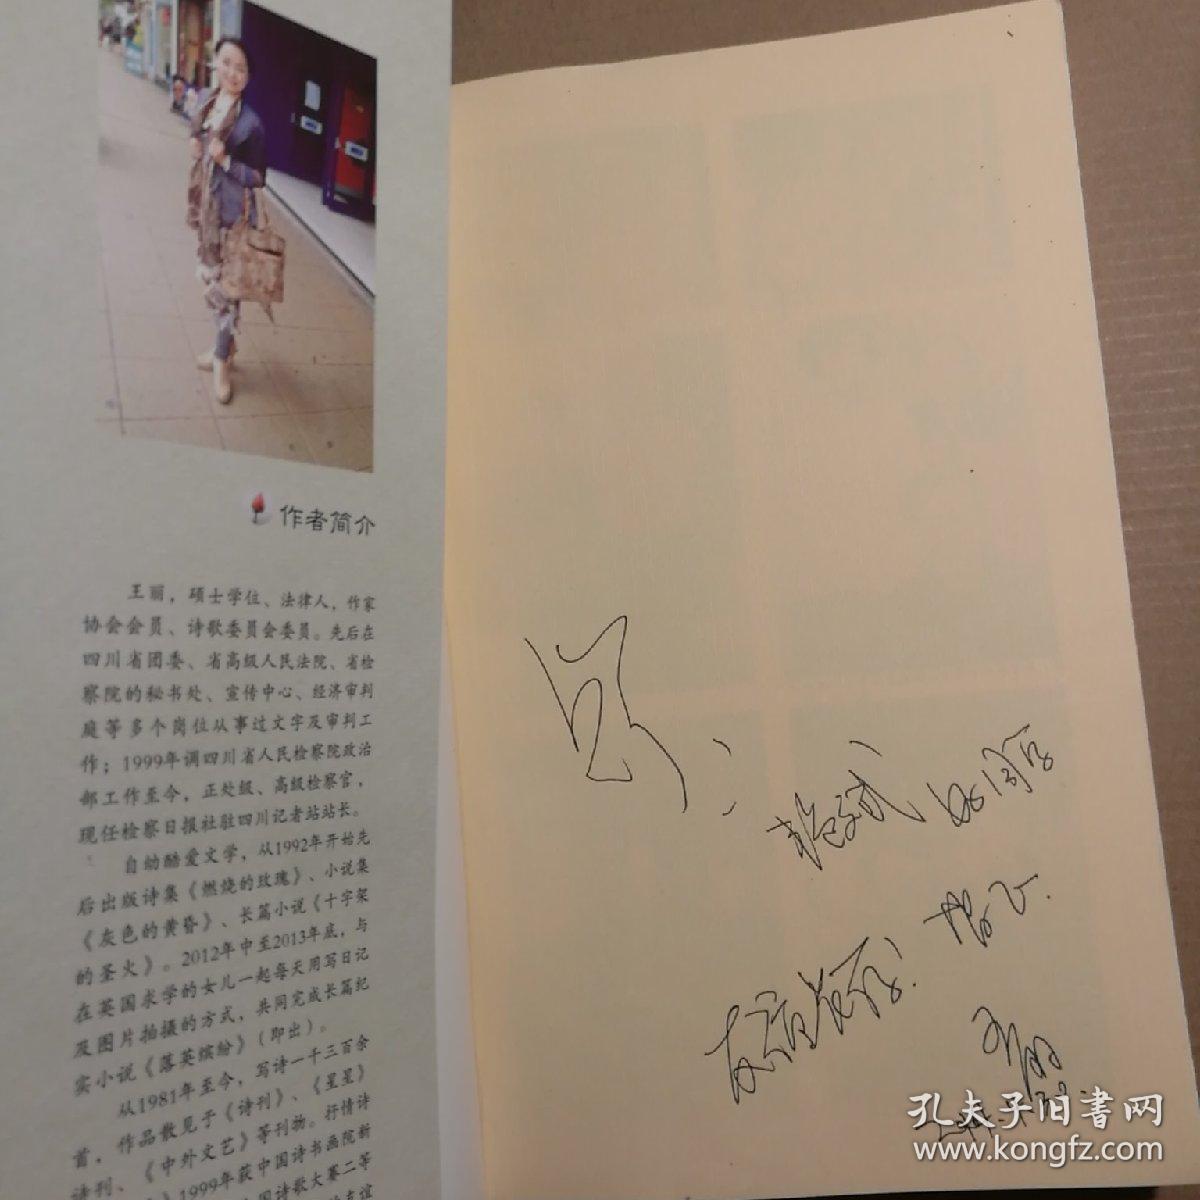 作者简介
王丽，硕士学位、法律人，作家
协会会员、诗歌委员会委员。先后在
四川省团委、省高级人民法院、省检
察院的秘书处、宣传中心、经济审判
庭等多个岗位从事过文字及审判工
作；1999年调四川省人民检察院政治
部工作至今，正处级、高级检察官，
现任检察日报社驻四川记者站站长。
自幼酷爱文学，从1992年开始先
后出版诗集《燃烧的玫瑰》、小说集
《灰色的黄昏》、长篇小说《十字架
的圣火》。2012年中至2013年底，与
在英国求学的女儿一起每天用写日记
及图片拍摄的方式，共同完成长篇纪
实小说《落英缤纷》（即出）。
从1981年至今，写诗一千三百余
首，作品散见于《诗刊》、《星星》
诗刊、《中外文艺》等刊物。抒情诗
》1999年获中国诗书画院新
国诗歌大赛二等
友谊
友谊长存！
王丽
孔夫子旧书网
www.kongfz.com